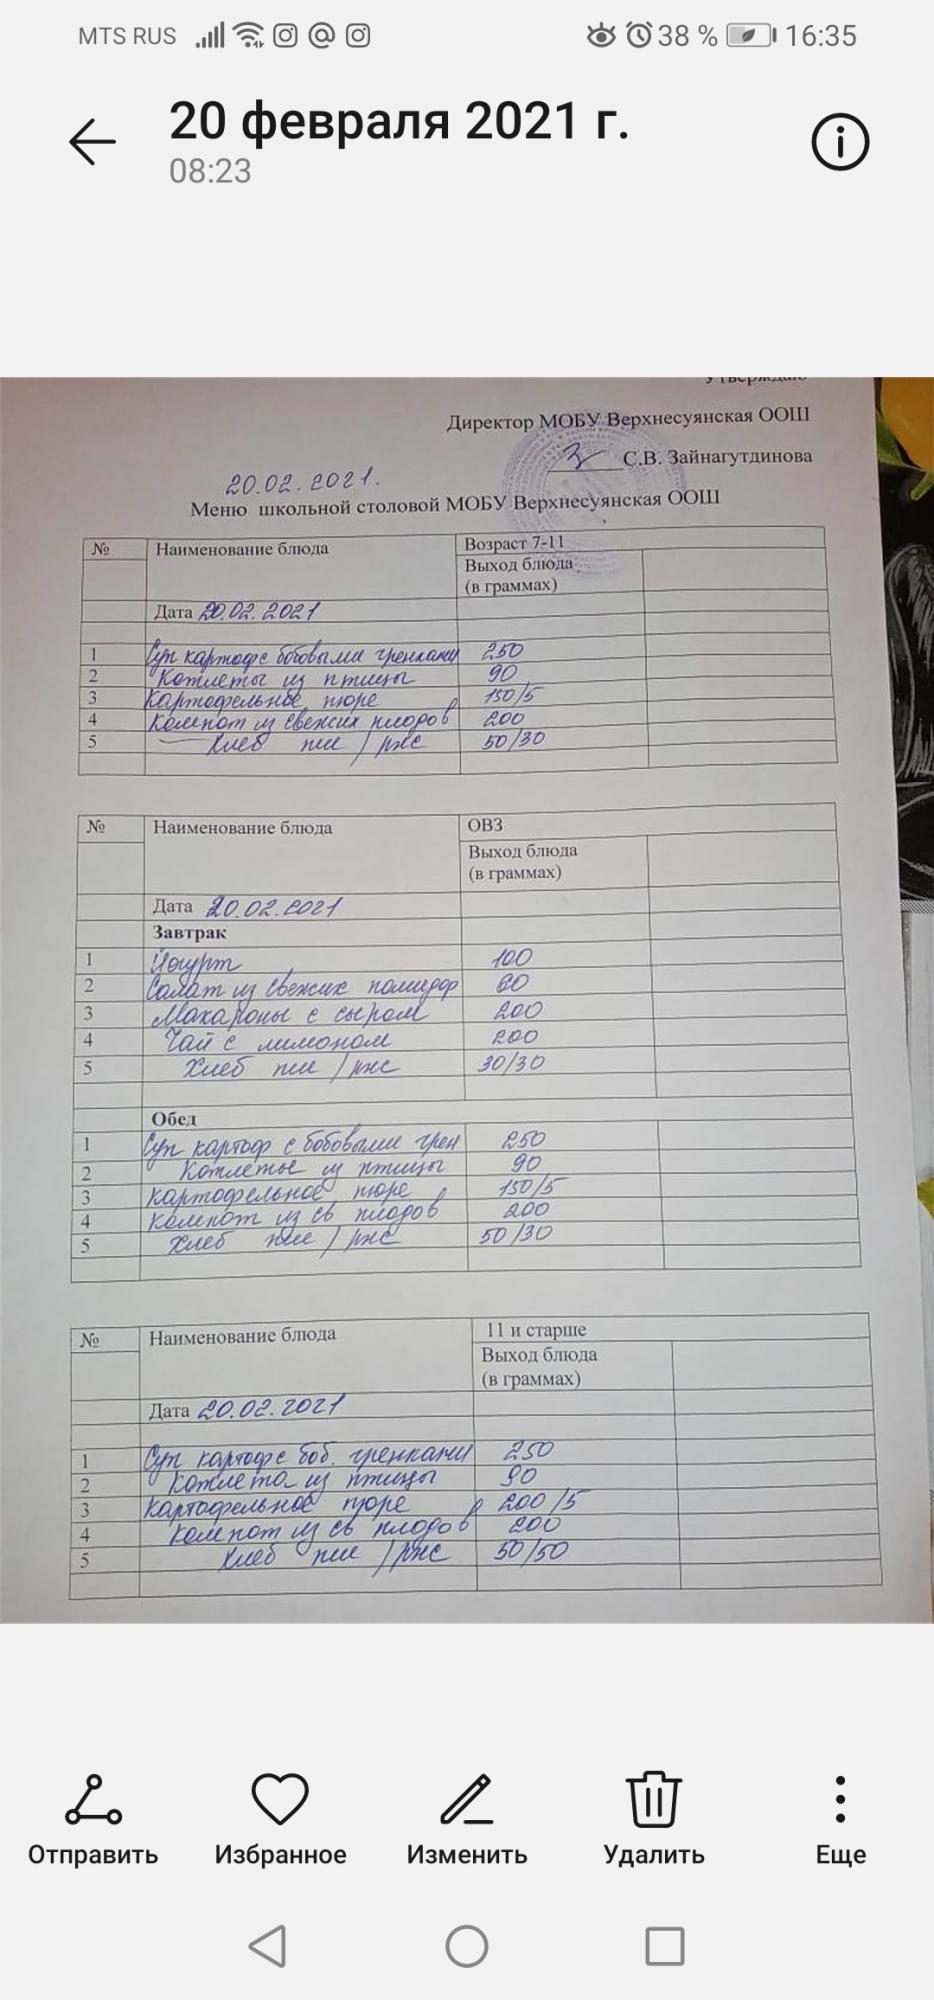 MTS RUS 38 % 16:35
20 февраля 2021 г.
08:23
Утверждаю
Директор МОБУ Верхнесуянская ООШ
С.В. Зайнагутдинова
20.02.2021.
Меню школьной столовой МОБУ Верхнесуянская ООШ
№ Наименование блюда Возраст 7-11
Выход блюда
(в граммах)
Дата 20.02.2021
1 Суп картоф с бобовыми гренками 250
2 Котлеты из птицы 90
3 Картофельное пюре 150/5
4 Компот из свежих плодов 200
5 Хлеб пше / ржс 50/30
№ Наименование блюда ОВЗ
Выход блюда
(в граммах)
Дата 20.02.2021
Завтрак
1 Йогурт 100
2 Салат из свежих помидор 60
3 Макароны с сыром 200
4 Чай с лимоном 200
5 Хлеб пше / ржс 30/30
Обед
1 Суп картоф с бобовыми грен 250
2 Котлеты из птицы 90
3 Картофельное пюре 150/5
4 Компот из св плодов 200
5 Хлеб пше / ржс 50/30
№ Наименование блюда 11 и старше
Выход блюда
(в граммах)
Дата 20.02.2021
1 Суп картоф с боб. гренками 250
2 Котлета из птицы 90
3 Картофельное пюре 200/5
4 Компот из св плодов 200
5 Хлеб пше / ржс 50/50
Отправить Избранное Изменить Удалить Еще